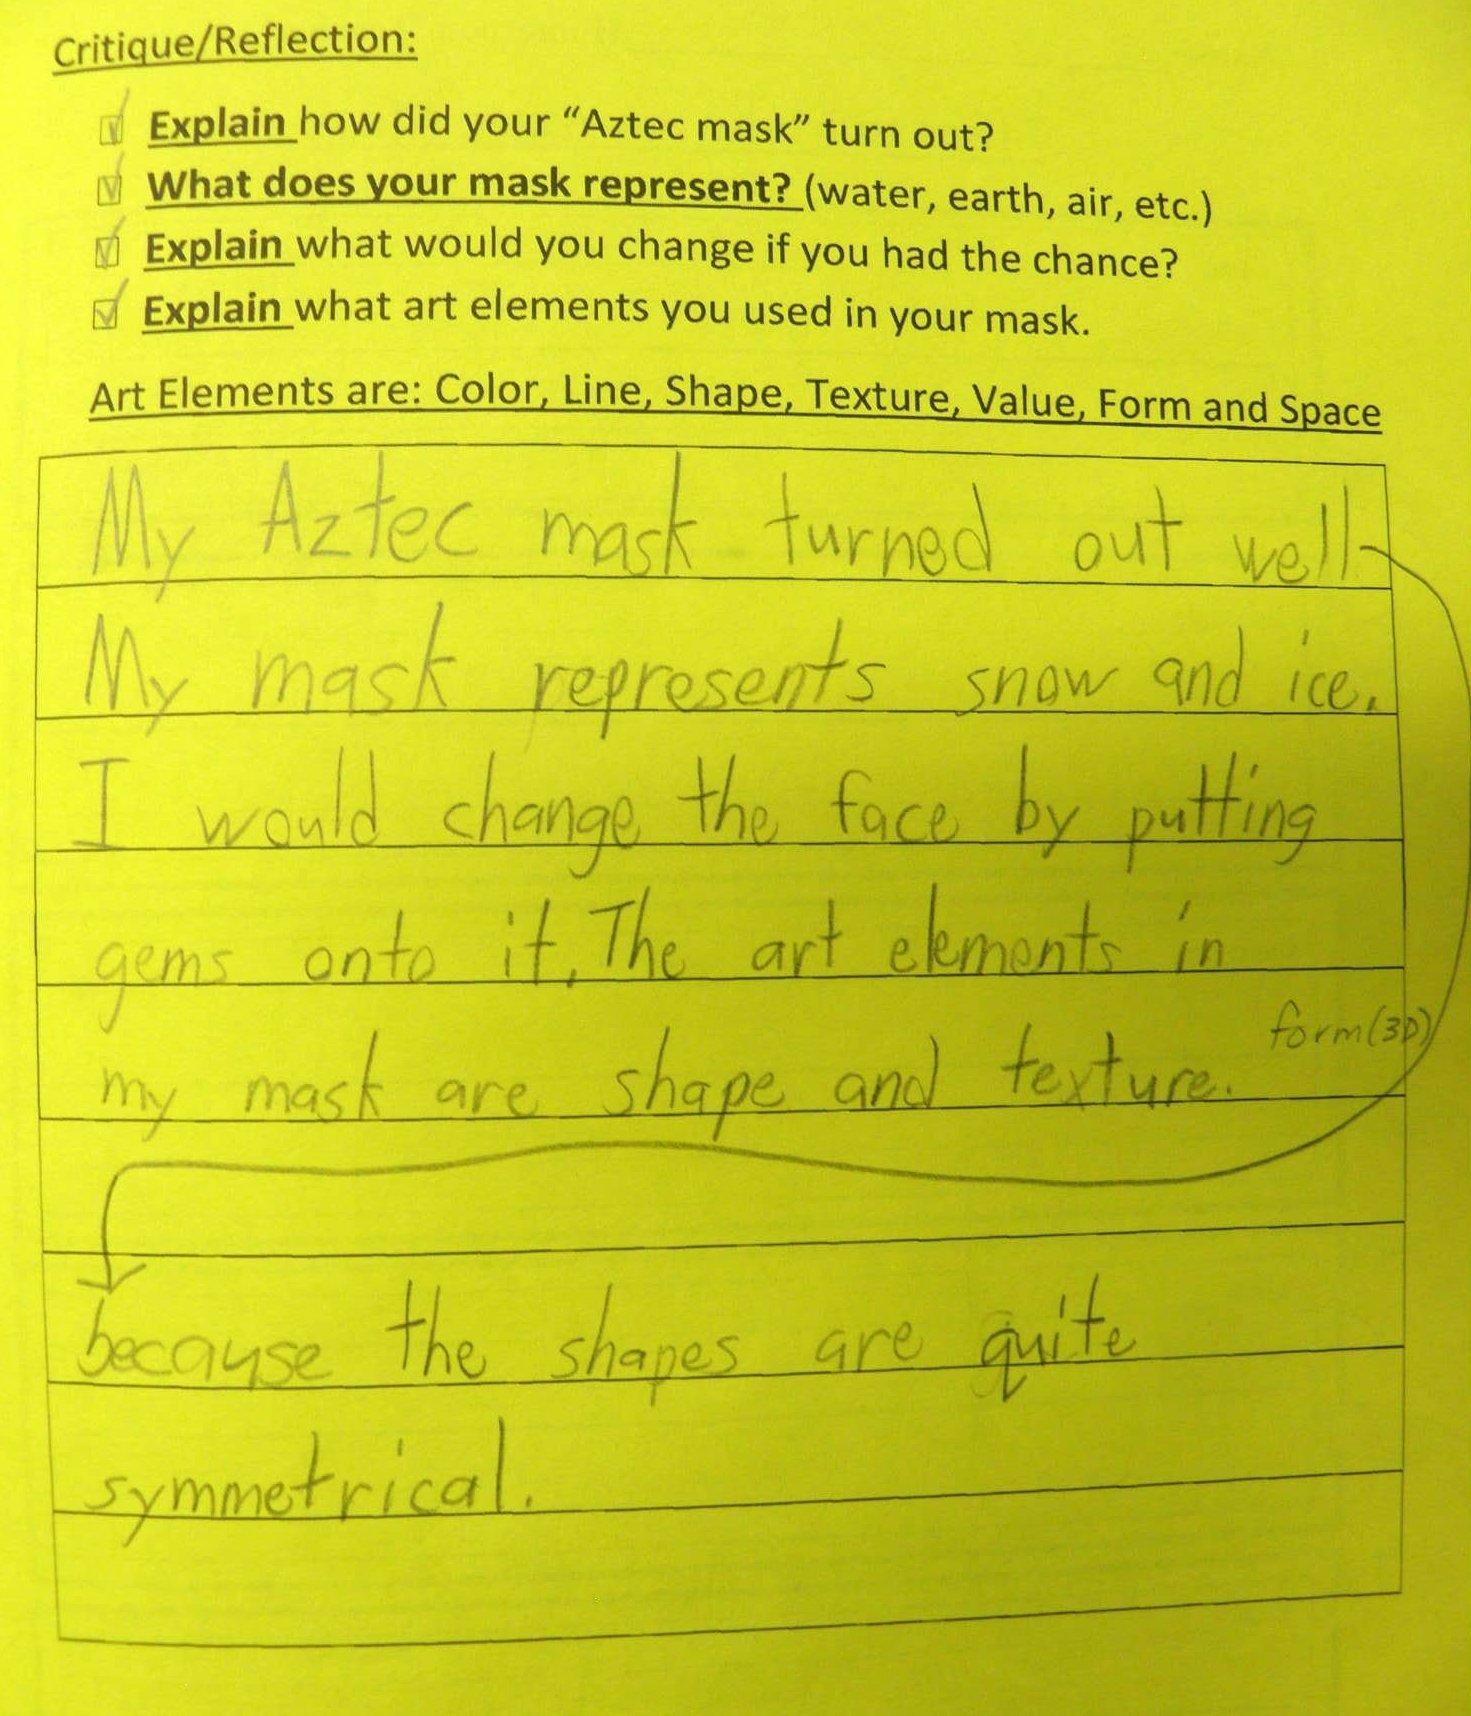 Critique/Reflection:
Explain how did your “Aztec mask” turn out?
What does your mask represent? (water, earth, air, etc.)
Explain what would you change if you had the chance?
Explain what art elements you used in your mask.
Art Elements are: Color, Line, Shape, Texture, Value, Form and Space
My Aztec mask turned out well
My mask represents snow and ice.
I would change the face by putting
gems onto it. The art elements in
my mask are shape and texture. form (3D)
because the shapes are quite
symmetrical.